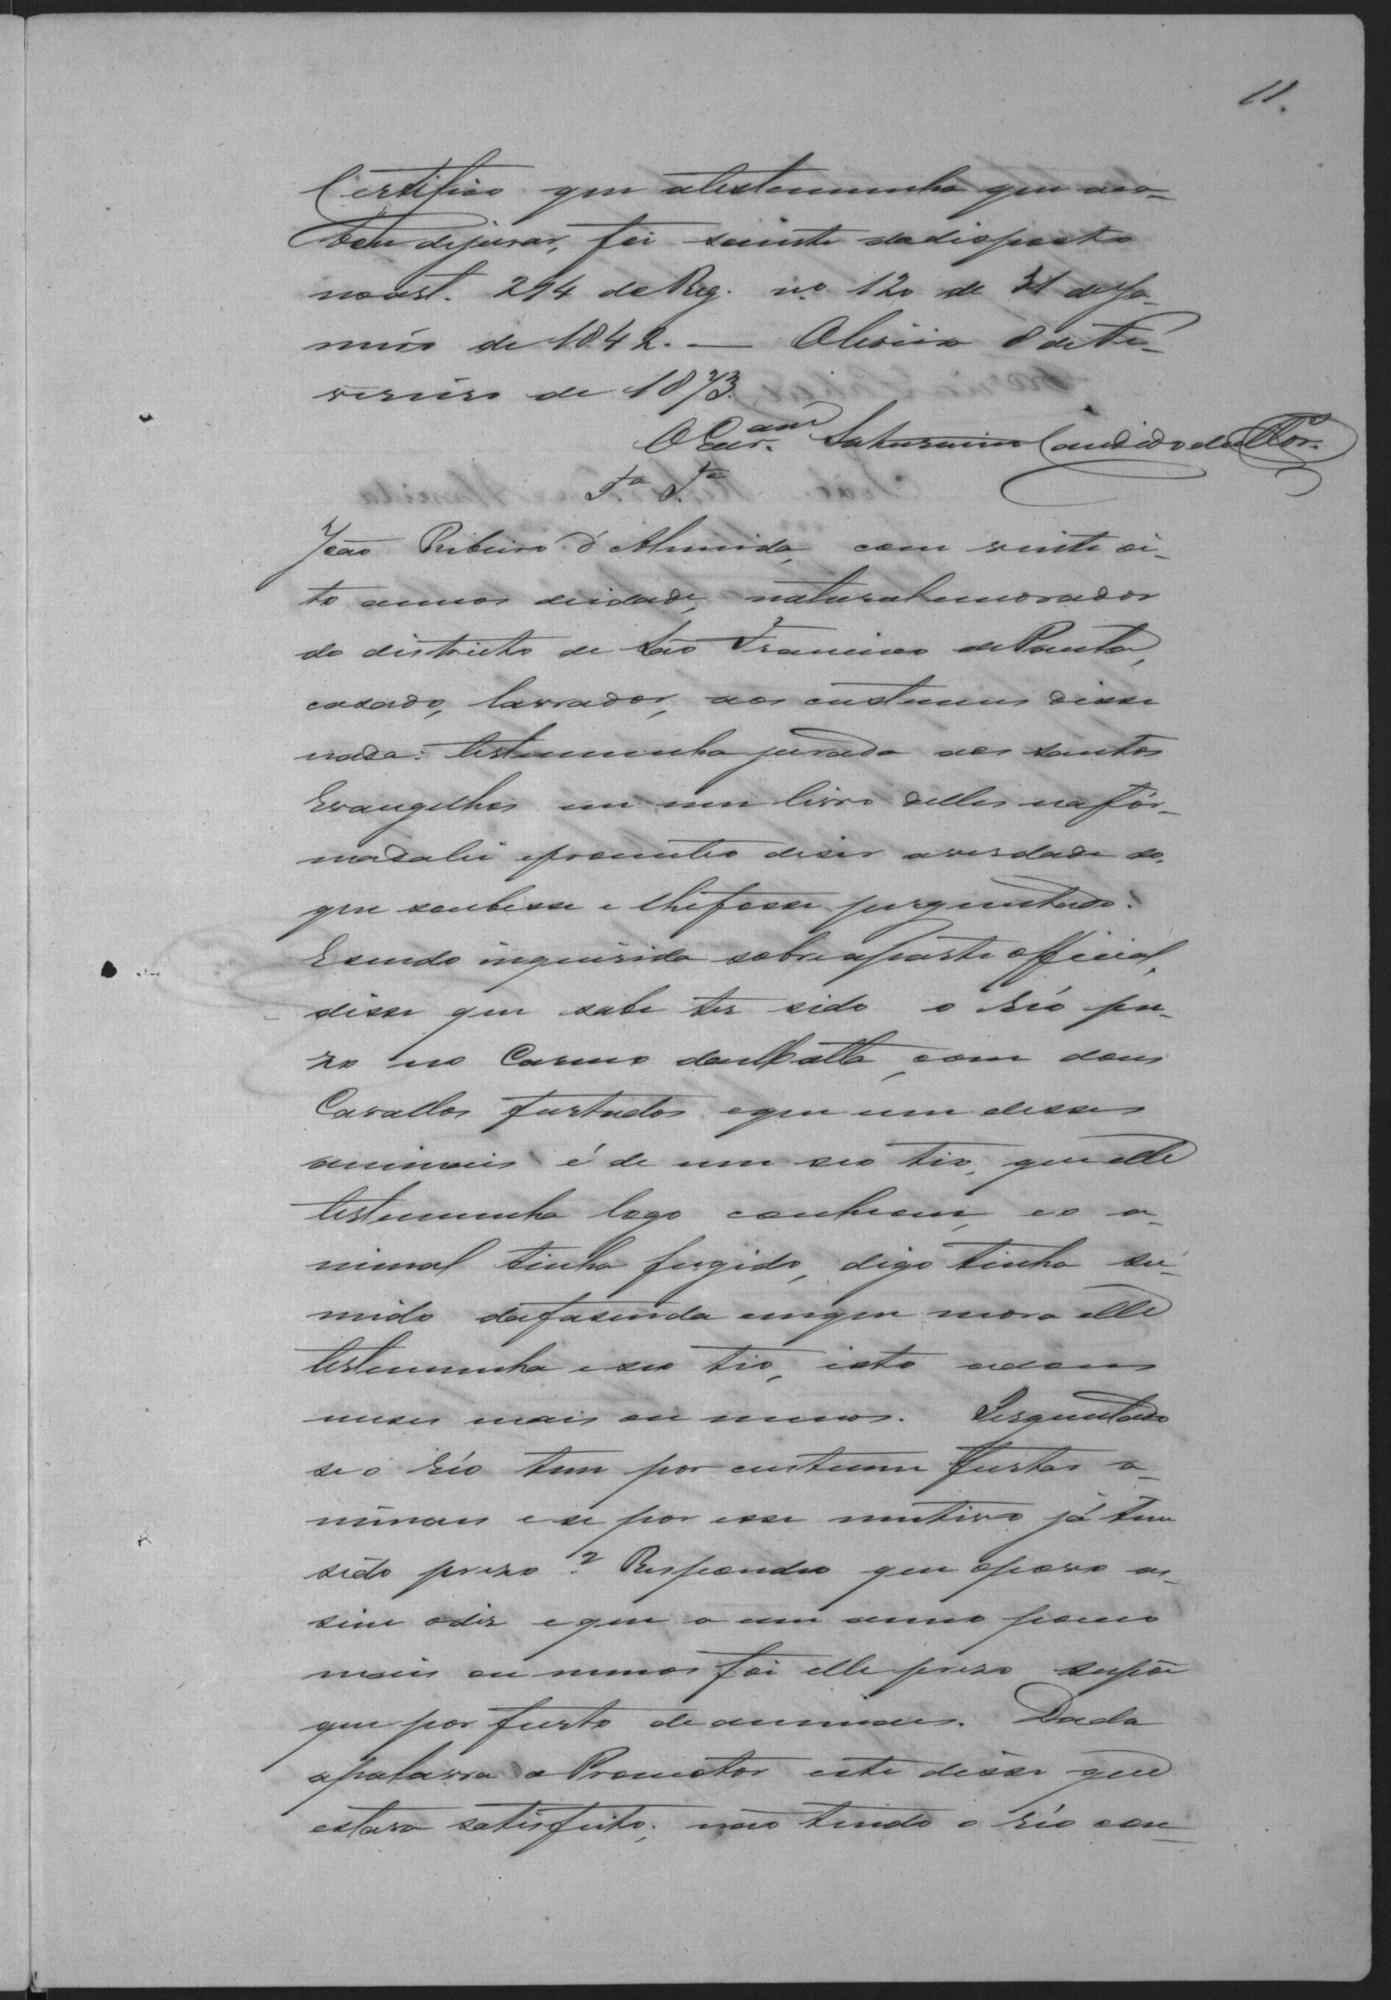 11.
Certifico que atestemunha que aca-
bou dejurar, foi sciente dodisposto
noart. 294 do Reg. nº 120 de 31 deJa-
neiro de 1842. — Oliveira 8 de Fe-
vereiro de 1873.
OEscr.am Saturnino Candido da
Tª Tª
João Ribeiro d'Almeida, com vinte oi-
to annos deidade, naturalemorador
do districto de São Francisco de Paula,
casado, lavrador, aos custumes disse
nada: testemunha jurada aos santos
Evangelhos em um livro delles nafór-
madalei eprometteo diser averdade do
que soubesse e lhefosse perguntado.
Esendo inquirida sobre aparte official,
disse que sabe ter sido o réo pre-
zo no Carmo daMatta, com dous
Cavallos furtados equeum desses
animais é de um seo tio, que elle
testemunha logo conheceu, eo a-
nimal tinha fugido, digo tinha su-
mido dafasenda emque mora elle
testemunha eseo tio, isto adous
meses mais ou menos. Perguntado
seo réo tem por custume furtar a-
nimaes ese por esse mutivo já tem
sido prezo? Respondeo que opovo as-
sim odiz eque a um anno pouco
mais ou menos foi elle prezo supõe
que por furto deanimaes. Dada
apalavra o Promotor este disse que
estava satisfeito; não tendo o réo con-